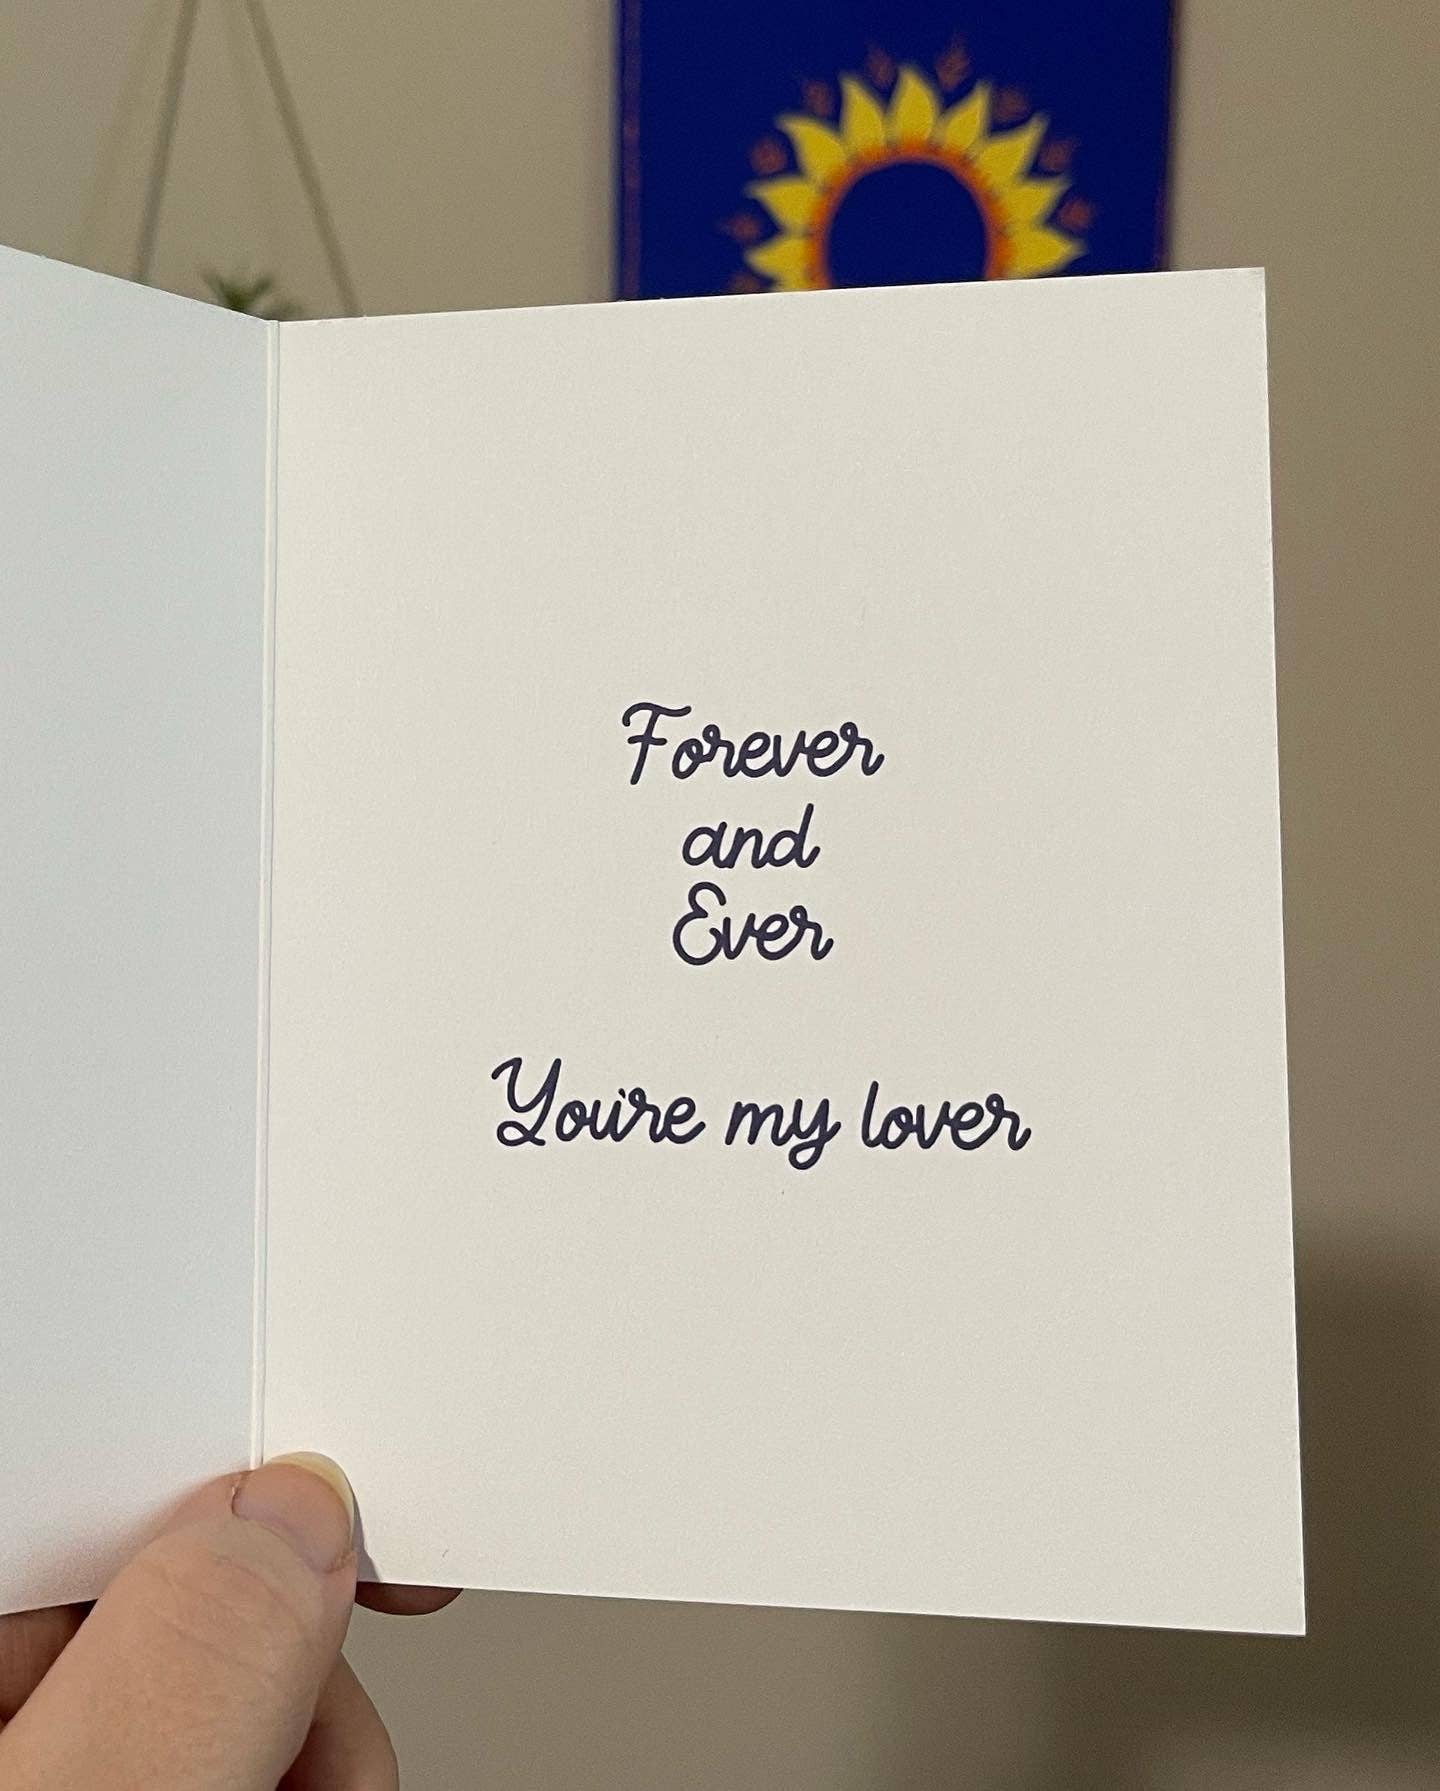 Forever
and
Ever
You're my lover